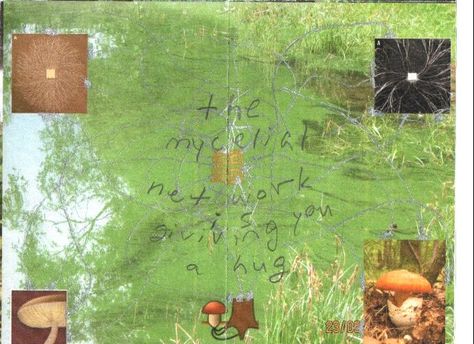 A
the
mycelial
net work
is
giviving you
a hug
23/02